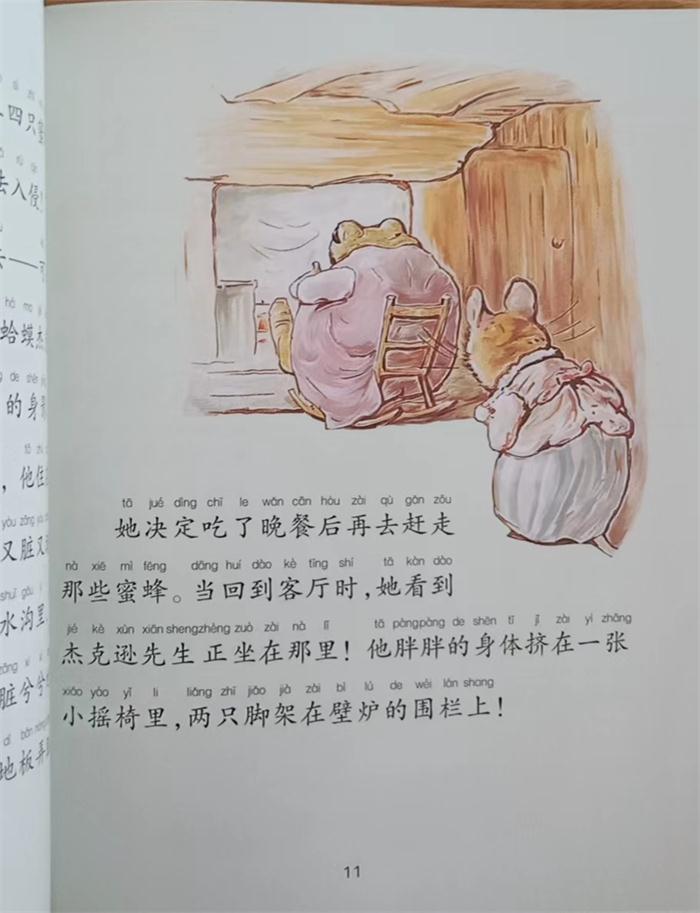 四只
去入侵
去——
há ma
蛤蟆杰
de shēn
的身影
，他住
又脏又
shuǐ gōu
水沟里
脏兮兮
dì bǎn nòng
地板弄
tā jué dìng chī le wǎn cān hòu zài qù gǎn zǒu
她决定吃了晚餐后再去赶走
nà xiē mì fēng dāng huí dào kè tīng shí tā kàn dào
那些蜜蜂。当回到客厅时,她看到
jié kè xùn xiān sheng zhèng zuò zài nà lǐ tā pàng pàng de shēn tǐ jǐ zài yì zhāng
杰克逊先生正坐在那里！他胖胖的身体挤在一张
xiǎo yáo yǐ li liǎng zhī jiǎo jià zài bì lú de wéi lán shang
小摇椅里,两只脚架在壁炉的围栏上！
11